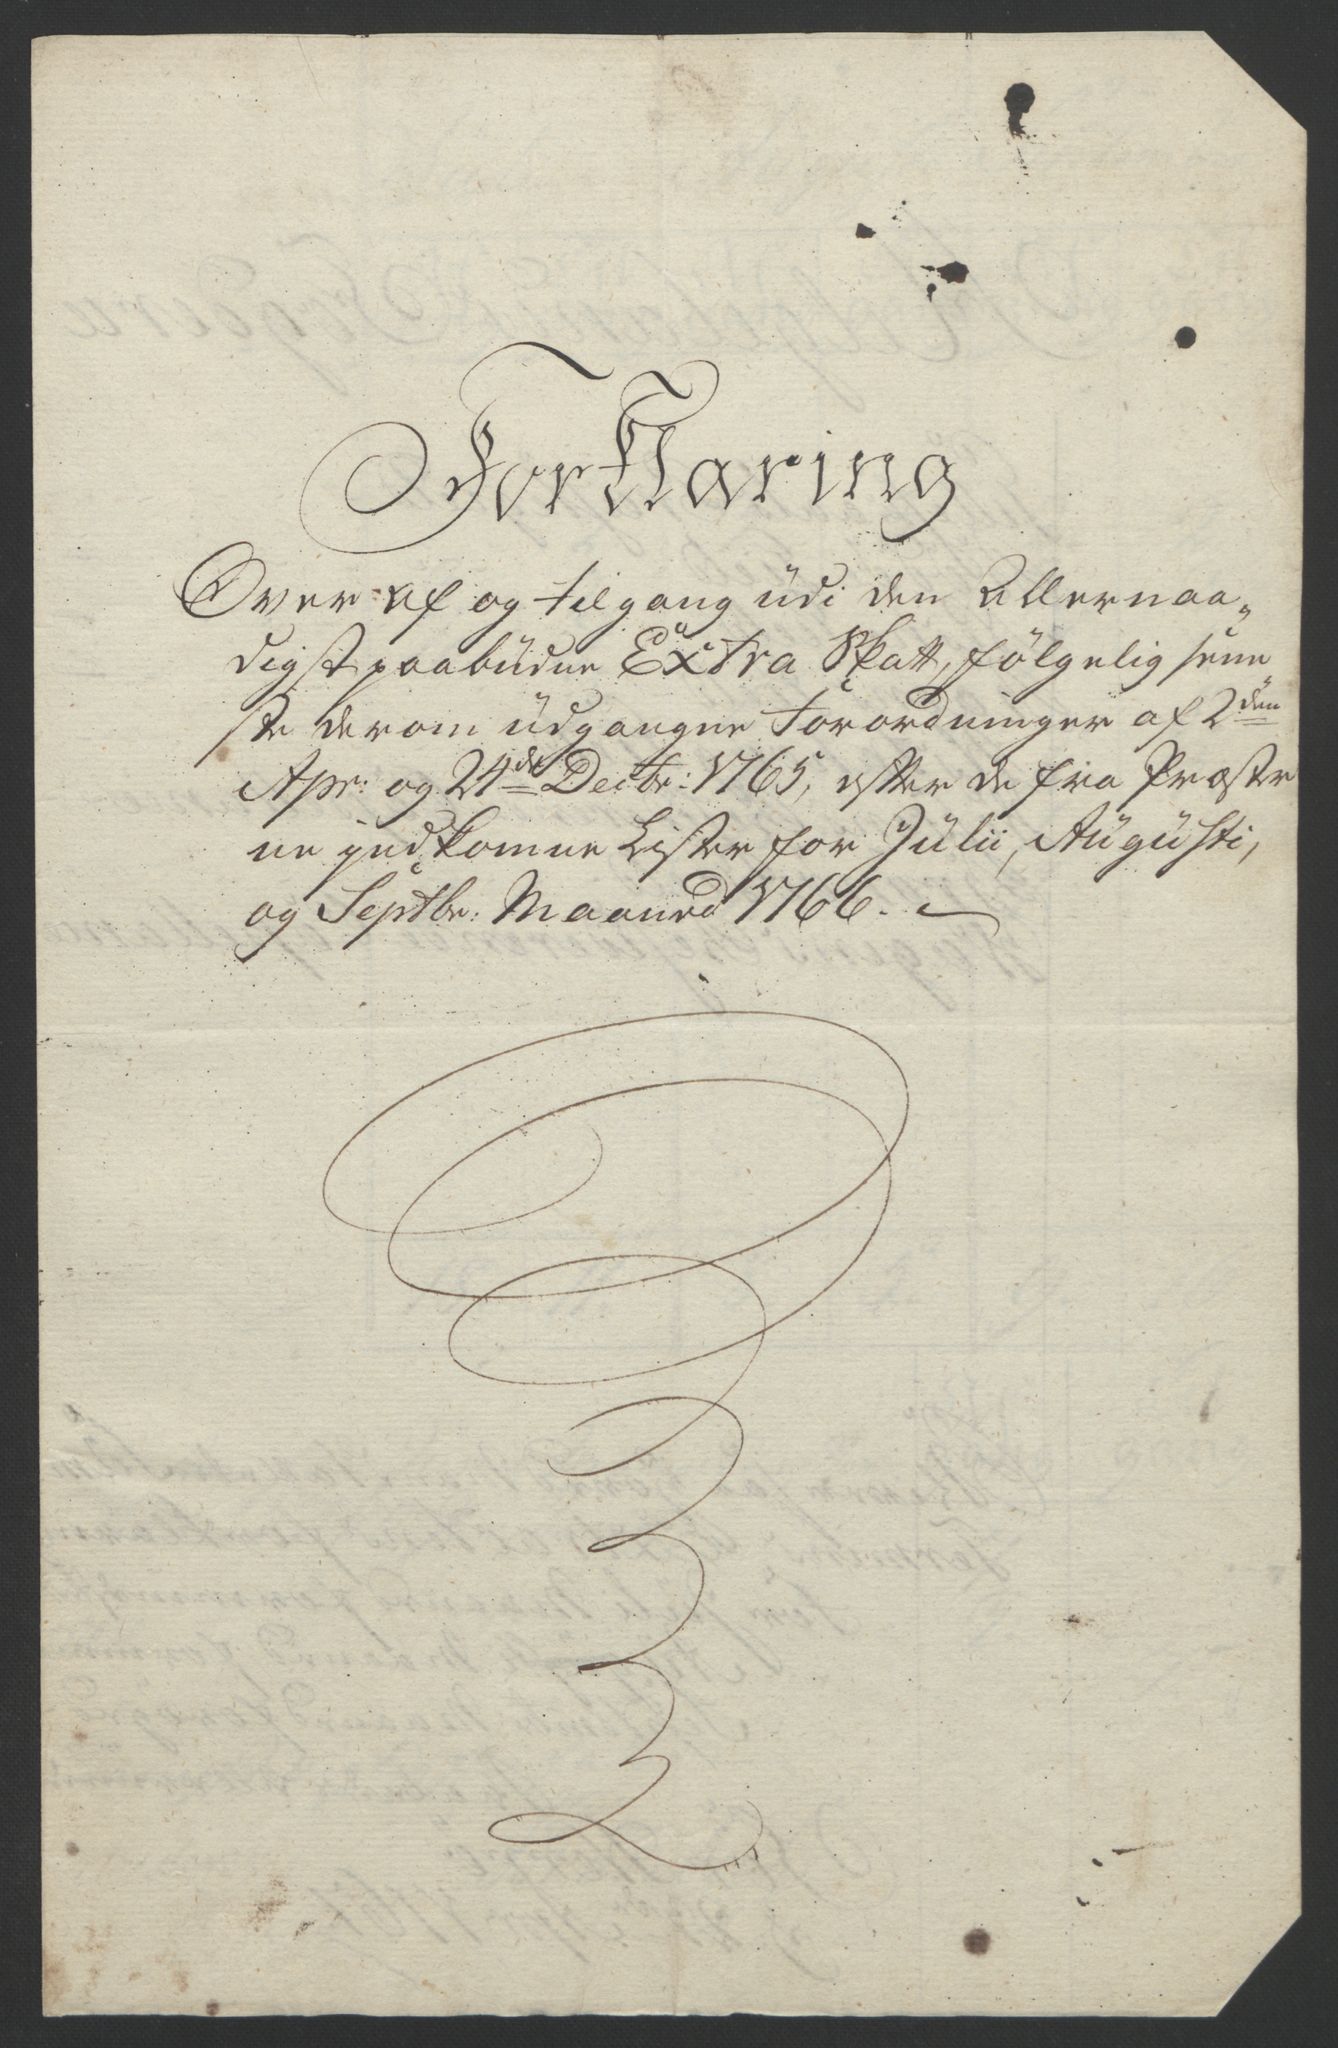 Forklaring
Over af og tilgang udi den Allernaa-
digst paabudne Extra Skatt, følgelig sene
ste derom udgangne Forordninger af 2den
Apr: og 24de Decbr: 1765, efter de fra Præster
ne indkomne Lister for Julii, Augusti,
og Septbr: Maaned 1766.